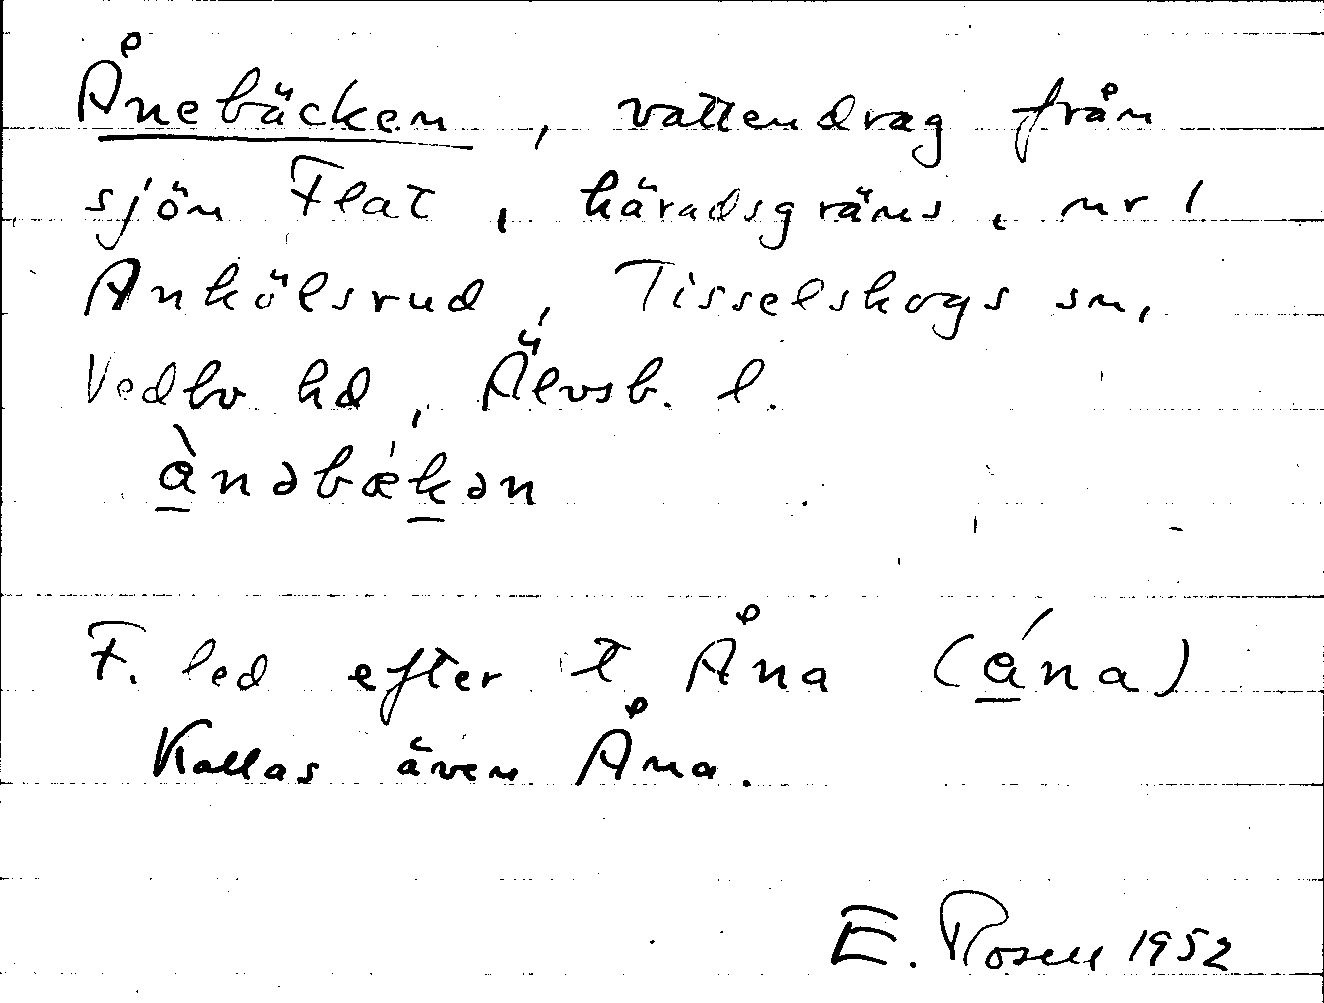 Ånebäcken, vattendrag från
sjön Flat, häradsgräns, nr 1
Ankölsrud, Tisselskogs sn,
Vedbo hd, Älvsb. l.
à̲nəbǽk̲ən
F. led efter t. Åna (á̲na)
Kallas även Åna.
E. Rosell 1952